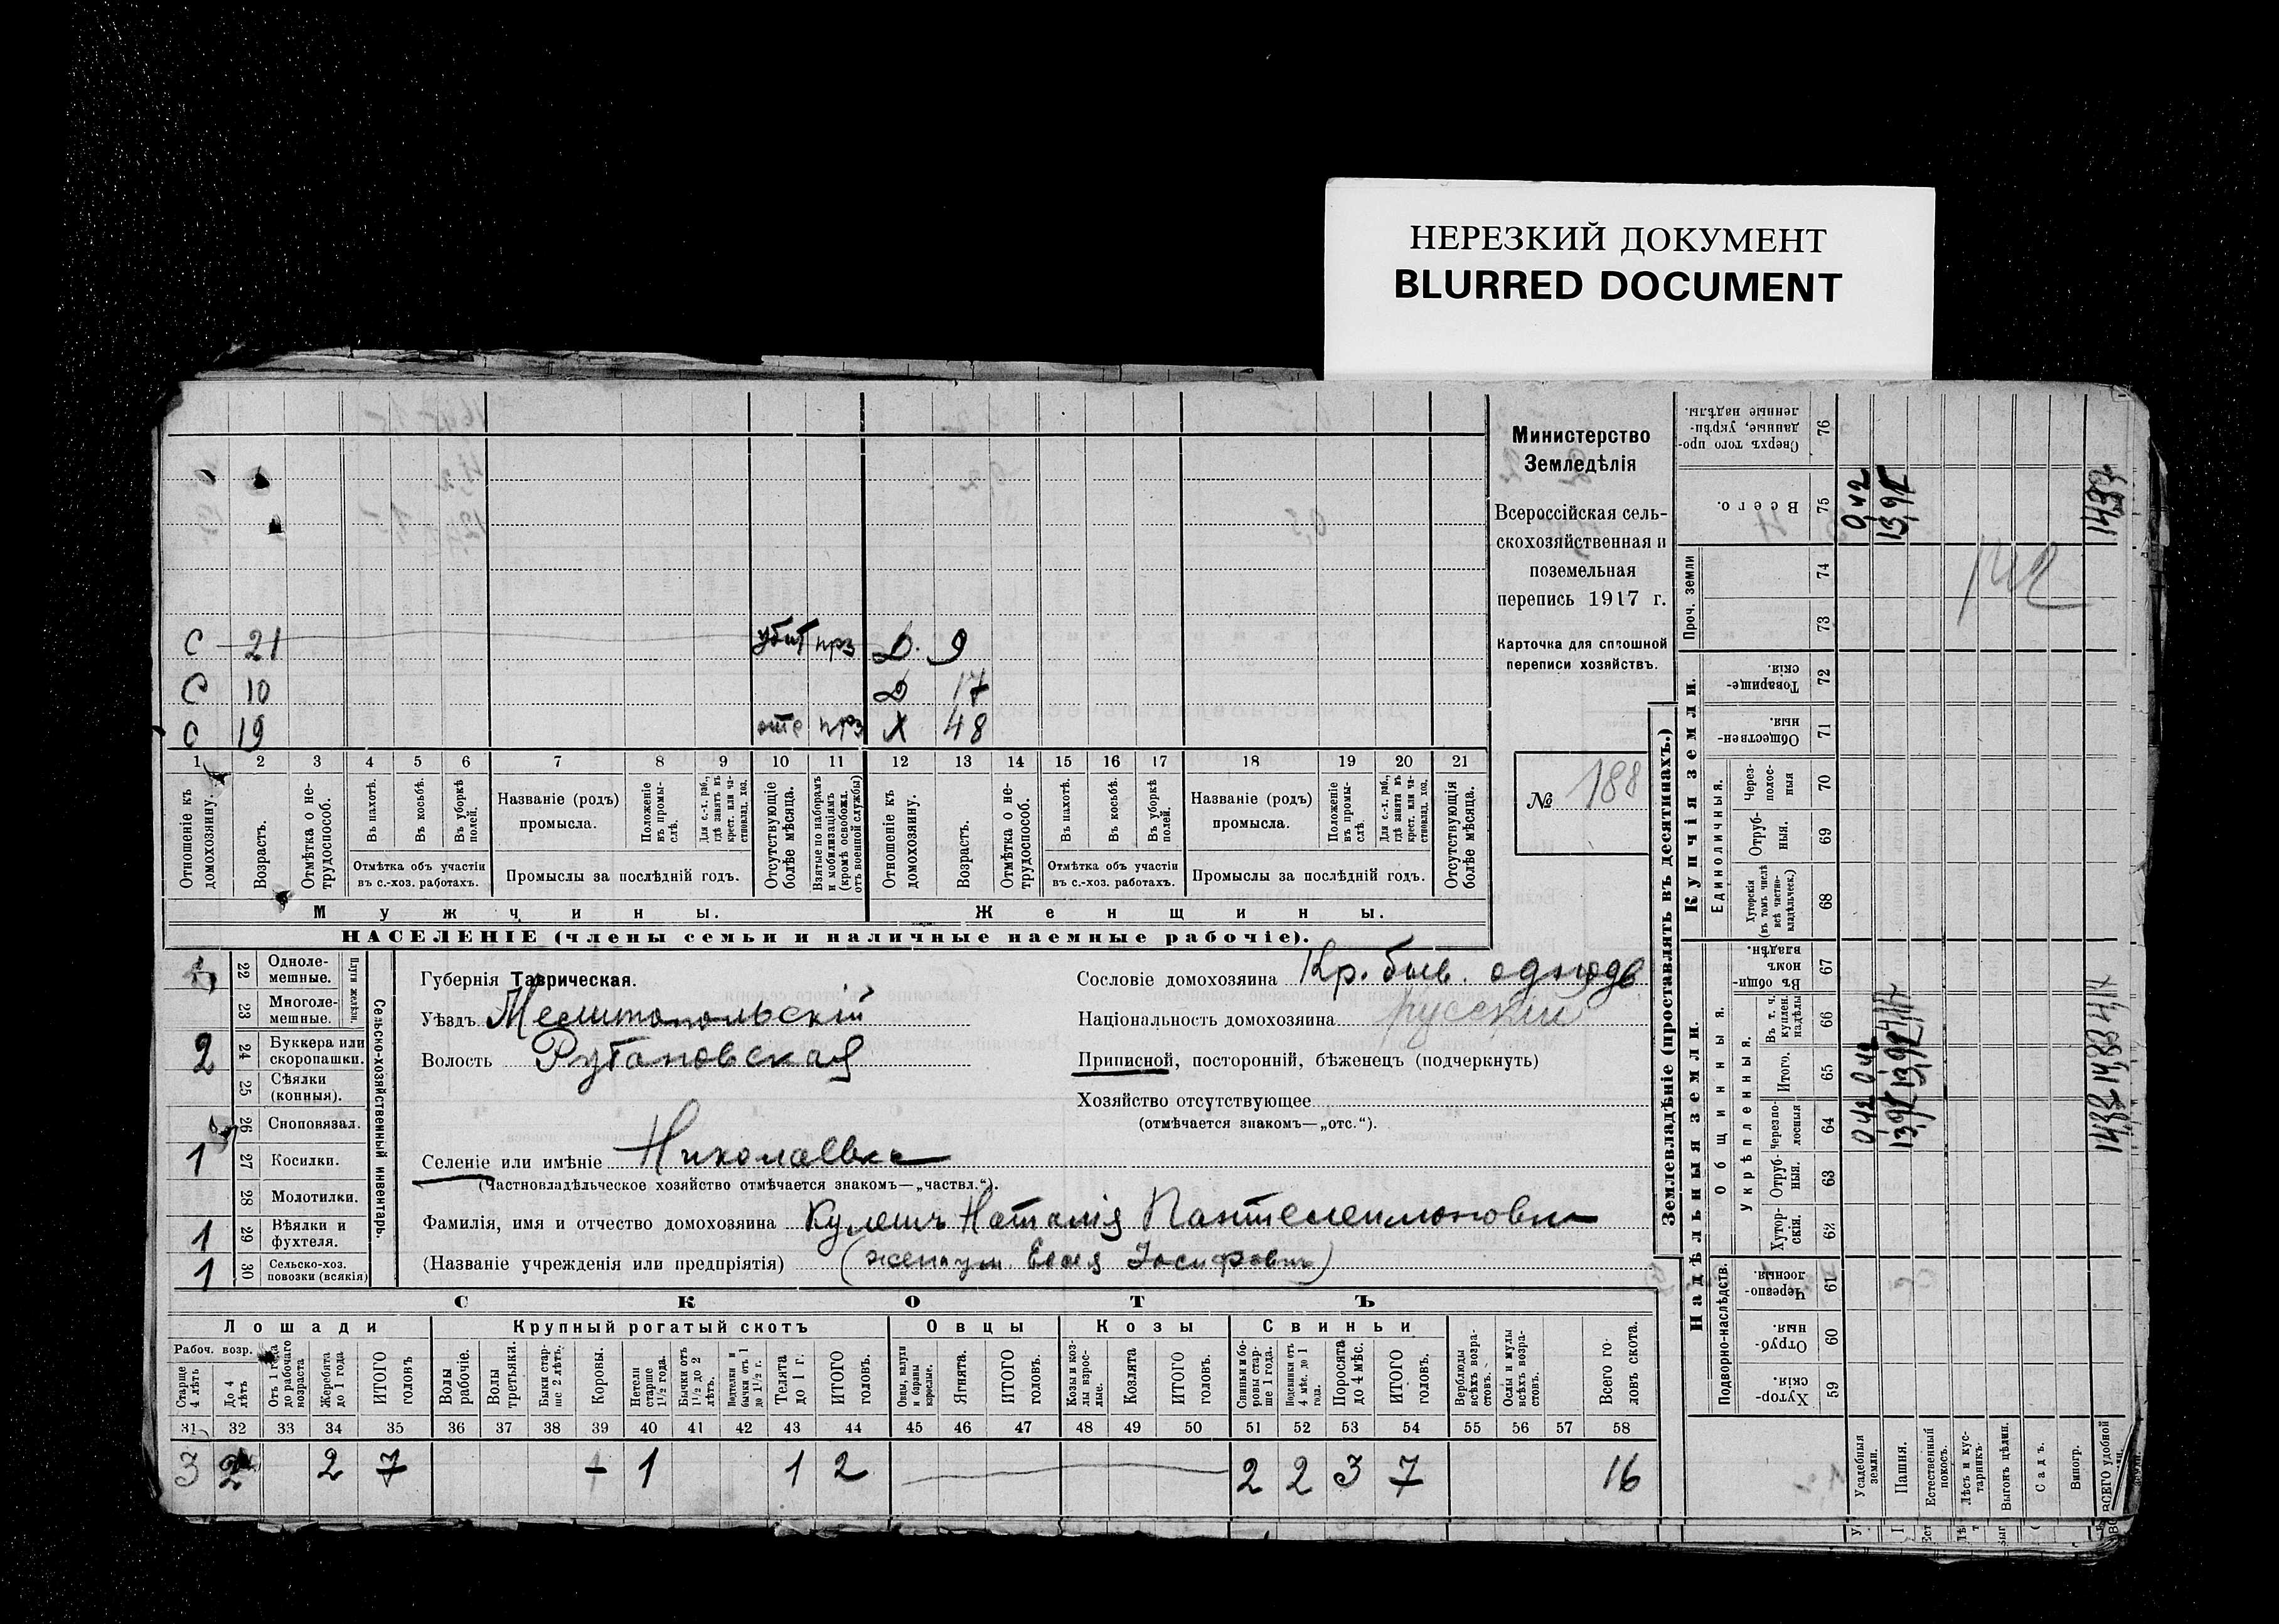 НЕРЕЗКИЙ ДОКУМЕНТ
BLURRED DOCUMENT
Министерство
Земледѣлія
Всероссійская сель-
скохозяйственная и
поземельная
перепись 1917 г.
Карточка для сплошной
переписи хозяйствъ.
№ 188
С 21 убит прз Д. 9
С 10 Д 17
С 19 прз Х 48
1 2 3 4 5 6 7 8 9 10 11 12 13 14 15 16 17 18 19 20 21
Отношеніе къ домохозяину.
Возрастъ.
Отмѣтка о не-трудоспособ.
Въ пахотѣ.
Въ косьбѣ.
Въ уборкѣ полей.
Отмѣтка объ участіи
въ с.-хоз. работахъ.
Названіе (родъ)
промысла.
Положеніе въ промы-слѣ.
Для с.-х. раб., гдѣ занятъ въ крест. или ча-стновлад. хоз.
Промыслы за послѣдній годъ.
Отсутствующіе болѣе мѣсяца.
Взятые по наборамъ и мобилизаціямъ (кромѣ освобожд. отъ военной службы)
Отношеніе къ домохозяину.
Возрастъ.
Отмѣтка о не-трудоспособ.
Въ пахотѣ.
Въ косьбѣ.
Въ уборкѣ полей.
Отмѣтка объ участіи
въ с.-хоз. работахъ.
Названіе (родъ)
промысла.
Положеніе въ промы-слѣ.
Для с.-х. раб., гдѣ занята въ крест. или ча-стновлад. хоз.
Промыслы за послѣдній годъ.
Отсутствующія болѣе мѣсяца.
Мужчины. Женщины.
НАСЕЛЕНІЕ (члены семьи и наличные наемные рабочіе).
Сельско-хозяйственный инвентарь.
Плуги желѣзн.
22 Одноле-мешные.
23 Многоле-мешные.
2 24 Буккера или скоропашки.
25 Сѣялки (конныя).
26 Сноповязал.
1 27 Косилки.
28 Молотилки.
1 29 Вѣялки и фухтеля.
1 30 Сельско-хоз. повозки (всякія)
Губернія Таврическая.
Уѣздъ Мелитопольскій
Волость Рубановская
Селеніе или имѣніе Николаевка
(Частновладѣльческое хозяйство отмѣчается знакомъ—„частвл.“).
Фамилія, имя и отчество домохозяина Кулешъ Наталія Пантелеимоновна
(Названіе учрежденія или предпріятія)
Сословіе домохозяина Кр. быв.
Національность домохозяина русскій
Приписной, посторонній, бѣженецъ (подчеркнуть)
Хозяйство отсутствующее
(отмѣчается знакомъ—„отс.“).
СКОТЪ
Лошади Крупный рогатый скотъ Овцы Козы Свиньи
Рабоч. возр.
Старше 4 лѣтъ
До 4 лѣтъ
Отъ 1 года до рабочаго возраста
Жеребята до 1 года
ИТОГО головъ
Волы рабочіе.
Волы третьяки.
Быки стар-ше 2 лѣтъ.
Коровы.
Нетели старше 1½ года.
Бычки отъ 1½ до 2 лѣтъ.
Подтелки и бычки отъ 1 до 1½ г.
Телята до 1 г.
ИТОГО головъ.
Овцы, валухи и бараны взрослые.
Ягнята.
ИТОГО головъ.
Козы и коз-лы взрос-лые.
Козлята
ИТОГО головъ.
Свиньи и бо-ровы стар-ше 1 года.
Подсвинки отъ 4 мѣс. до 1 года.
Поросята до 4 мѣс.
ИТОГО головъ.
Верблюды всѣхъ возра-стовъ.
Ослы и мулы всѣхъ возра-стовъ.
Всего го-ловъ скота.
31 32 33 34 35 36 37 38 39 40 41 42 43 44 45 46 47 48 49 50 51 52 53 54 55 56 57 58
3 2 2 7 1 1 2 2 2 3 7 16
Землевладѣніе (проставлять въ десятинахъ.)
Надѣльныя земли. Купчія земли.
Подворно-наслѣдств.
Общинныя.
Укрѣпленныя.
Единоличныя.
Проч. земли
59 Хутор-скія.
60 Отруб-ныя.
61 Черезпо-лосныя
62 Хутор-скія.
63 Отруб-ныя.
64 Черезпо-лосныя
65 Итого.
66 Въ т. ч. куплен. надѣлы
67 Въ общи-номъ владѣн.
68 Хуторскія (въ томъ числѣ всѣ частно-владѣльческ.)
69 Отруб-ныя.
70 Через-полос-ныя
71 Обществен-ныя.
72 Товарище-скія.
73
74
75 Всего.
76 Сверхъ того про-данные, укрѣп-ленные надѣлы.
Усадебныя земли.
Пашня.
Естественный покосъ.
Лѣсъ и кус-тарникъ.
Выгонъ цѣлин.
Садъ.
Виногр.
ВСЕГО удобной